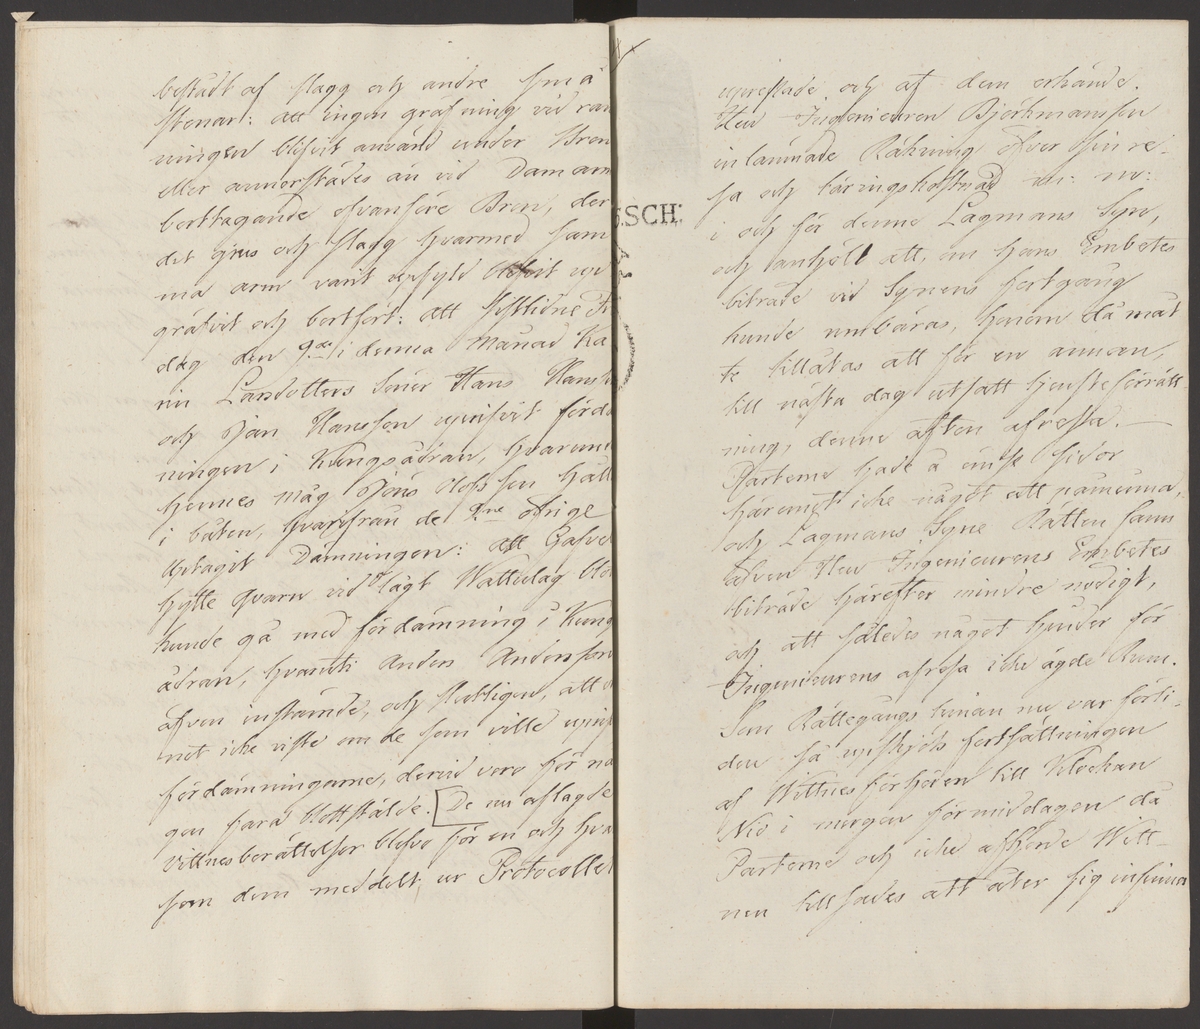 bestådt af slagg och andre små
stenar: att ingen gräfning vid ran
ningen blifvit använd under Bron
eller annorstädes än vid Damarm
borttagande ofvanföre Bron, der
det grus och slagg hvarmed sam
ma arm varit upfyld blifvit up
gräfvit och bortfört: att sistlidne
dag den 9de i denna Månad Ka
nu Larsdotters Söner Hans Hans
och Jan Hansson uprifvit förda
ningen i Kungsådran, hvarun
hennes måg Jöns Olofsson håll
i båten, hvarifrån de 2ne öfrige
uptagit Damningen: att Gafvel
hytte Qvarn vid lågt Wattulag
kunde gå med fördämning i Kung
ådran, hvaruti Anders Andersson
äfven instämde, och slutligen, att
net icke viste om de som ville uprif
fördämningarne, dervid voro för nå
gon fara blottstälde. [De nu aflagde
Vittnesberättelser blefvo för en och hva
som dem meddelt, ur Protocollet
SCH:
upreste och af dem erkände.
Herr Ingenieuren Björkmansson
inlämnade Räkning öfver sin re-
sa och täringskostnad
i och för denne Lagmans Syn,
och anhöll att, om hans Embetes
biträde vid Synens fortgång
kunde umbäras, honom då måt
te tillåtas att för en annan,
till nästa dag utsatt tjensteförrätt
ning, denne afton afresa.
Parterne hade å ömse sidor
häremot icke något att påminna,
och Lagmans Syne Rätten fann
äfven Herr Ingenieurens Embetes
biträde härefter mindre nödigt,
och att således något hinder för
Ingenieurens afresa icke ägde Rum.
Som Rättegångs timan nu var förli-
den så upskjöts fortsättningen
af Wittnesförhören till Klockan
Nio i morgon förmiddagen då
Parterne och icke afhörde Witt-
nen tillsades att åter sig infinna